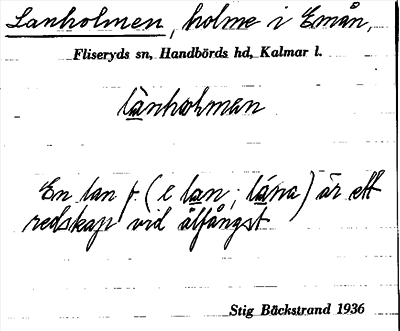 Lanholmen, holme i Emån,
Fliseryds sn, Handbörds hd, Kalmar l.
lànhomen
En lan f. (e lan; lána) är ett
redskap vid ålfångst
Stig Bäckstrand 1936